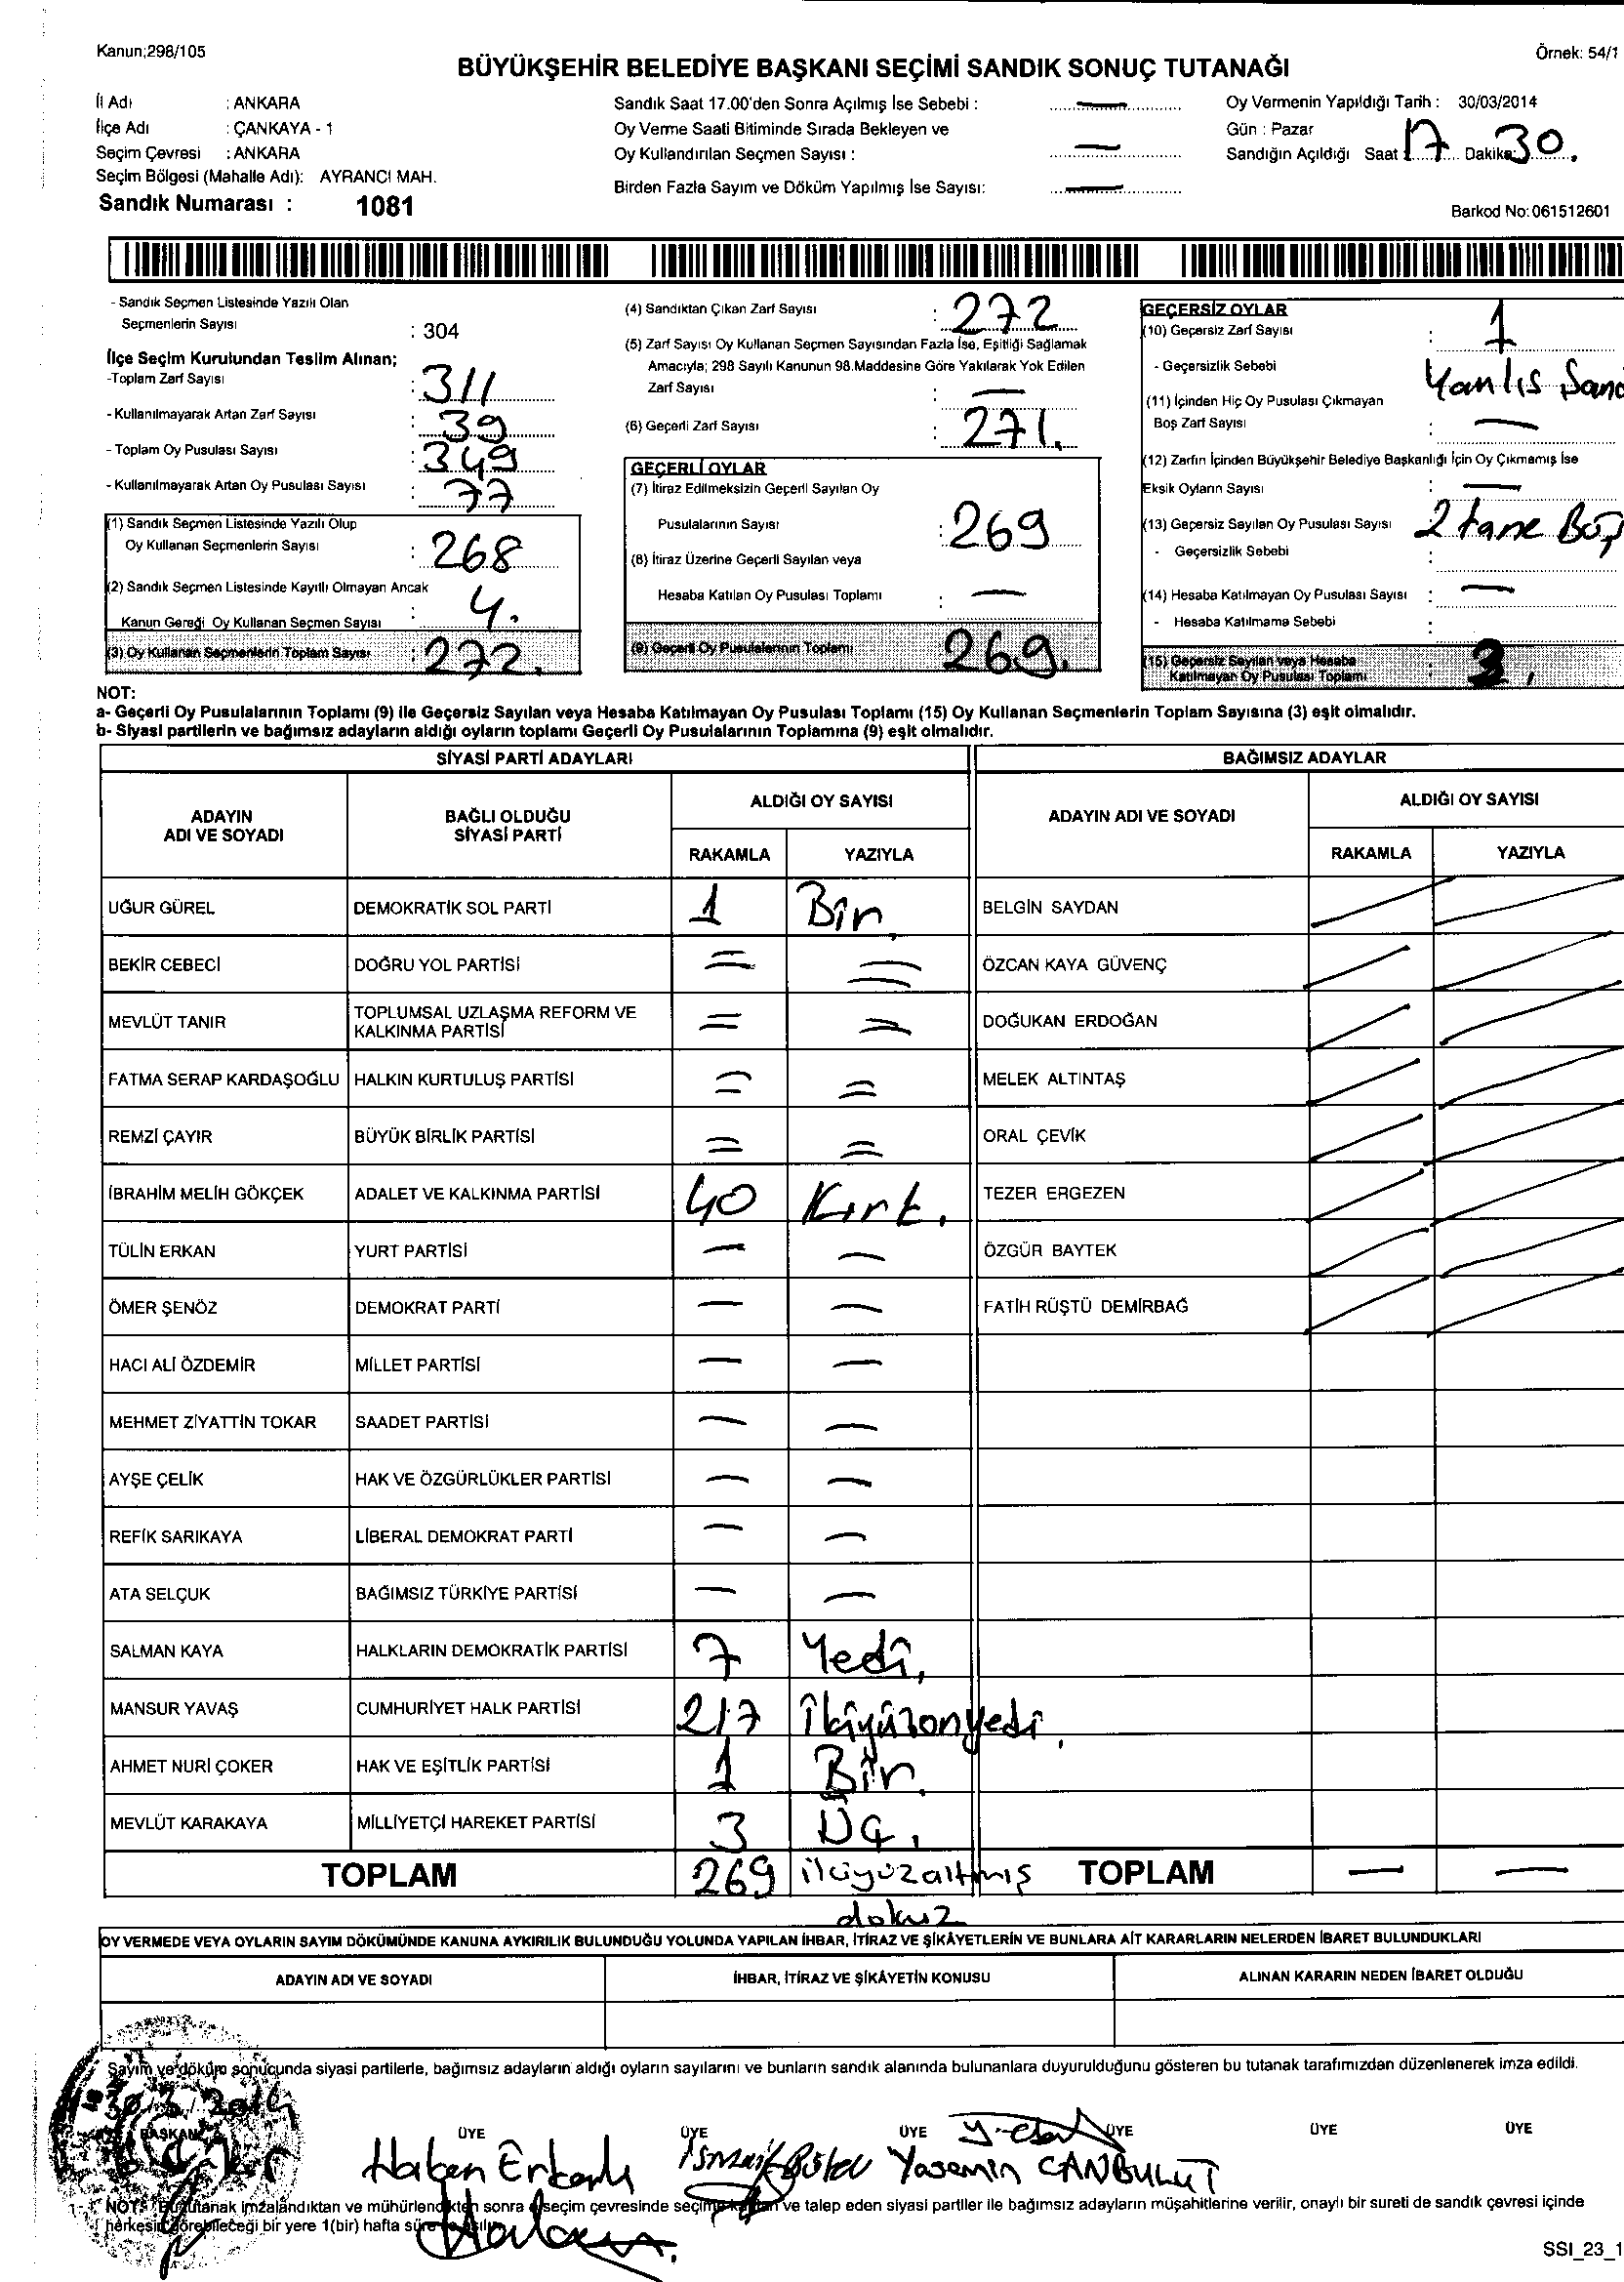 Kanun;298/105
Örnek: 54/1
BÜYÜKŞEHİR BELEDİYE BAŞKANI SEÇİMİ SANDIK SONUÇ TUTANAĞI
İl Adı : ANKARA
İlçe Adı : ÇANKAYA - 1
Seçim Çevresi : ANKARA
Seçim Bölgesi (Mahalle Adı): AYRANCI MAH.
Sandık Numarası : 1081
Sandık Saat 17.00'den Sonra Açılmış İse Sebebi : —
Oy Verme Saati Bitiminde Sırada Bekleyen ve
Oy Kullandırılan Seçmen Sayısı : —
Birden Fazla Sayım ve Döküm Yapılmış İse Sayısı: —
Oy Vermenin Yapıldığı Tarih : 30/03/2014
Gün : Pazar
Sandığın Açıldığı Saat : 17 Dakika: 30.
Barkod No:061512601
- Sandık Seçmen Listesinde Yazılı Olan
Seçmenlerin Sayısı : 304
İlçe Seçim Kurulundan Teslim Alınan;
-Toplam Zarf Sayısı : 311
- Kullanılmayarak Artan Zarf Sayısı : 39
- Toplam Oy Pusulası Sayısı : 349
- Kullanılmayarak Artan Oy Pusulası Sayısı : 77
(1) Sandık Seçmen Listesinde Yazılı Olup
Oy Kullanan Seçmenlerin Sayısı : 268
(2) Sandık Seçmen Listesinde Kayıtlı Olmayan Ancak
Kanun Gereği Oy Kullanan Seçmen Sayısı : 4.
(3) Oy Kullanan Seçmenlerin Toplam Sayısı : 272.
(4) Sandıktan Çıkan Zarf Sayısı : 272
(5) Zarf Sayısı Oy Kullanan Seçmen Sayısından Fazla İse, Eşitliği Sağlamak
Amacıyla; 298 Sayılı Kanunun 98.Maddesine Göre Yakılarak Yok Edilen
Zarf Sayısı : —
(6) Geçerli Zarf Sayısı : 271.
GEÇERLİ OYLAR
(7) İtiraz Edilmeksizin Geçerli Sayılan Oy
Pusulalarının Sayısı : 269
(8) İtiraz Üzerine Geçerli Sayılan veya
Hesaba Katılan Oy Pusulası Toplamı : —
(9) Geçerli Oy Pusulalarının Toplamı 269.
GEÇERSİZ OYLAR
(10) Geçersiz Zarf Sayısı : 1
- Geçersizlik Sebebi Yanlıs Sand
(11) İçinden Hiç Oy Pusulası Çıkmayan
Boş Zarf Sayısı : —
(12) Zarfın İçinden Büyükşehir Belediye Başkanlığı İçin Oy Çıkmamış İse
Eksik Oyların Sayısı : —
(13) Geçersiz Sayılan Oy Pusulası Sayısı : 2 tane Boş
- Geçersizlik Sebebi :
(14) Hesaba Katılmayan Oy Pusulası Sayısı : —
- Hesaba Katılmama Sebebi :
(15) Geçersiz Sayılan veya Hesaba
Katılmayan Oy Pusulası Toplamı : 3.
NOT:
a- Geçerli Oy Pusulalarının Toplamı (9) ile Geçersiz Sayılan veya Hesaba Katılmayan Oy Pusulası Toplamı (15) Oy Kullanan Seçmenlerin Toplam Sayısına (3) eşit olmalıdır.
b- Siyasi partilerin ve bağımsız adayların aldığı oyların toplamı Geçerli Oy Pusulalarının Toplamına (9) eşit olmalıdır.
SİYASİ PARTİ ADAYLARI BAĞIMSIZ ADAYLAR
ADAYIN ADI VE SOYADI BAĞLI OLDUĞU SİYASİ PARTİ ALDIĞI OY SAYISI ADAYIN ADI VE SOYADI ALDIĞI OY SAYISI
RAKAMLA YAZIYLA RAKAMLA YAZIYLA
UĞUR GÜREL DEMOKRATİK SOL PARTİ 1 Bir. BELGİN SAYDAN
BEKİR CEBECİ DOĞRU YOL PARTİSİ = = ÖZCAN KAYA GÜVENÇ
MEVLÜT TANIR TOPLUMSAL UZLAŞMA REFORM VE KALKINMA PARTİSİ = = DOĞUKAN ERDOĞAN
FATMA SERAP KARDAŞOĞLU HALKIN KURTULUŞ PARTİSİ = = MELEK ALTINTAŞ
REMZİ ÇAYIR BÜYÜK BİRLİK PARTİSİ = = ORAL ÇEVİK
İBRAHİM MELİH GÖKÇEK ADALET VE KALKINMA PARTİSİ 40 Kırk. TEZER ERGEZEN
TÜLİN ERKAN YURT PARTİSİ — — ÖZGÜR BAYTEK
ÖMER ŞENÖZ DEMOKRAT PARTİ — — FATİH RÜŞTÜ DEMİRBAĞ
HACI ALİ ÖZDEMİR MİLLET PARTİSİ — —
MEHMET ZİYATTİN TOKAR SAADET PARTİSİ — —
AYŞE ÇELİK HAK VE ÖZGÜRLÜKLER PARTİSİ — —
REFİK SARIKAYA LİBERAL DEMOKRAT PARTİ — —
ATA SELÇUK BAĞIMSIZ TÜRKİYE PARTİSİ — —
SALMAN KAYA HALKLARIN DEMOKRATİK PARTİSİ 7 Yedi,
MANSUR YAVAŞ CUMHURİYET HALK PARTİSİ 217 İkiyüzonyedi.
AHMET NURİ ÇOKER HAK VE EŞİTLİK PARTİSİ 1 Bir.
MEVLÜT KARAKAYA MİLLİYETÇİ HAREKET PARTİSİ 3 Üç.
TOPLAM 269 ikiyüzaltmış dokuz TOPLAM — —
OY VERMEDE VEYA OYLARIN SAYIM DÖKÜMÜNDE KANUNA AYKIRILIK BULUNDUĞU YOLUNDA YAPILAN İHBAR, İTİRAZ VE ŞİKÂYETLERİN VE BUNLARA AİT KARARLARIN NELERDEN İBARET BULUNDUKLARI
ADAYIN ADI VE SOYADI İHBAR, İTİRAZ VE ŞİKÂYETİN KONUSU ALINAN KARARIN NEDEN İBARET OLDUĞU
Sayım ve döküm sonucunda siyasi partilerle, bağımsız adayların aldığı oyların sayılarını ve bunların sandık alanında bulunanlara duyurulduğunu gösteren bu tutanak tarafımızdan düzenlenerek imza edildi.
30/3/2014
BAŞKAN ÜYE ÜYE ÜYE ÜYE ÜYE ÜYE
Hakan Yasemin CANBULUT
NOT: Bu tutanak imzalandıktan ve mühürlendikten sonra seçim çevresinde seçime katılan ve talep eden siyasi partiler ile bağımsız adayların müşahitlerine verilir, onaylı bir sureti de sandık çevresi içinde
herkesin görebileceği bir yere 1(bir) hafta süre ile asılır.
SSI_23_1